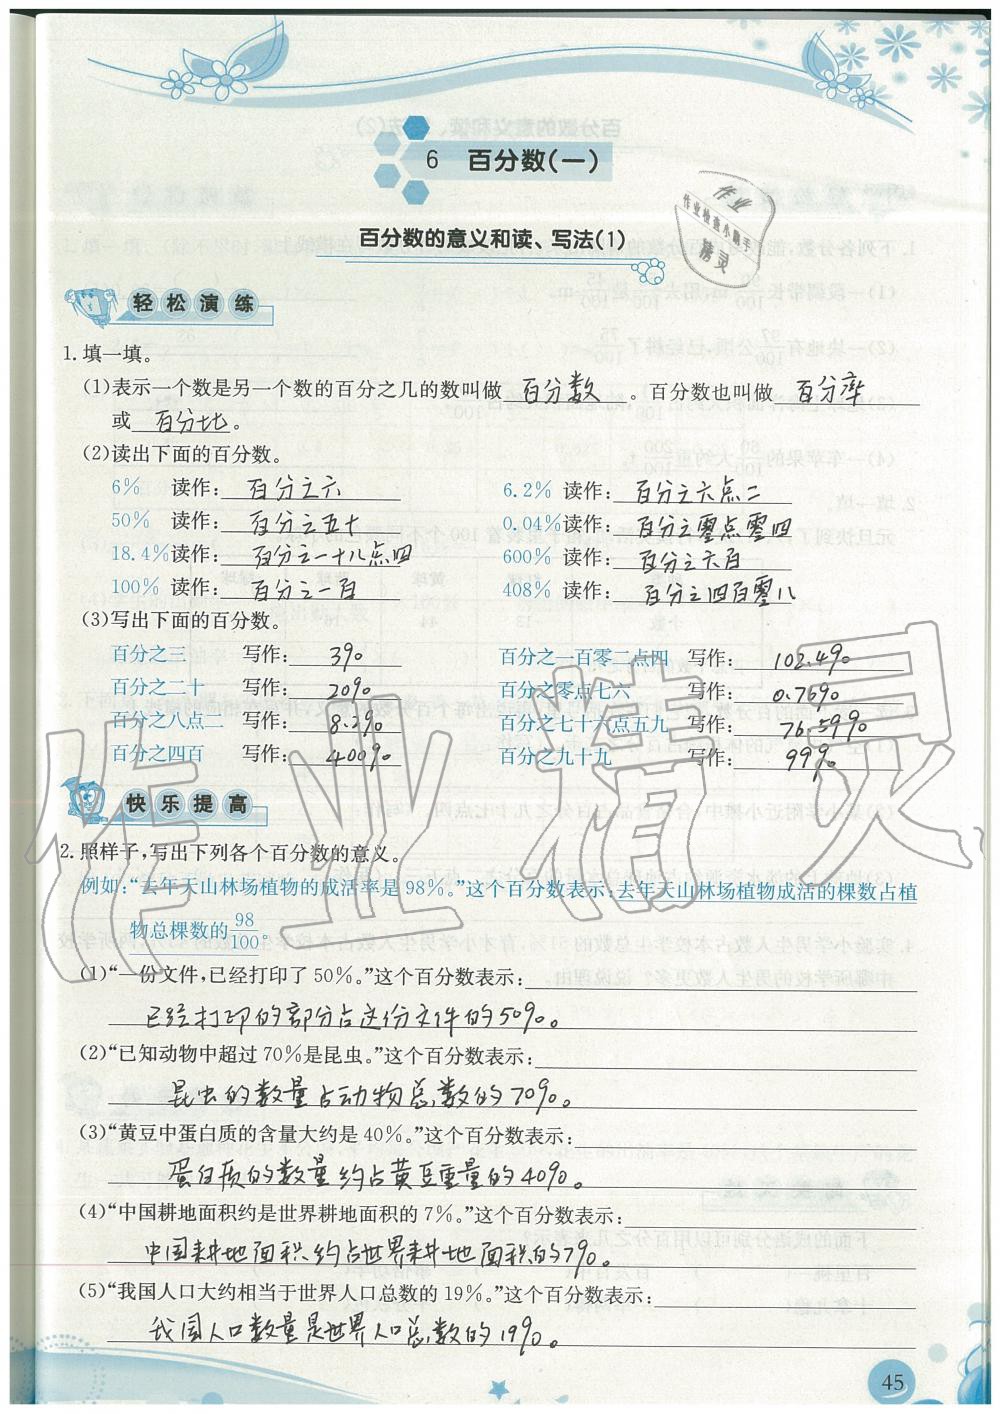 6 百分数(一)
作业
作业检查小助手
精灵
百分数的意义和读、写法(1)
轻松演练
1. 填一填。
(1)表示一个数是另一个数的百分之几的数叫做 百分数 。百分数也叫做 百分率
或 百分比 。
(2)读出下面的百分数。
6% 读作: 百分之六 6.2% 读作: 百分之六点二
50% 读作: 百分之五十 0.04% 读作: 百分之零点零四
18.4% 读作: 百分之一十八点四 600% 读作: 百分之六百
100% 读作: 百分之一百 408% 读作: 百分之四百零八
(3)写出下面的百分数。
百分之三 写作: 3% 百分之一百零二点四 写作: 102.4%
百分之二十 写作: 20% 百分之零点七六 写作: 0.76%
百分之八点二 写作: 8.2% 百分之七十六点五九 写作: 76.59%
百分之四百 写作: 400% 百分之九十九 写作: 99%
作业精灵
快乐提高
2. 照样子,写出下列各个百分数的意义。
例如:“去年天山林场植物的成活率是98%。”这个百分数表示:去年天山林场植物成活的棵数占植
物总棵数的98/100。
(1)“一份文件,已经打印了50%。”这个百分数表示:
已经打印的部分占这份文件的50%。
(2)“已知动物中超过70%是昆虫。”这个百分数表示:
昆虫的数量占动物总数的70%。
(3)“黄豆中蛋白质的含量大约是40%。”这个百分数表示:
蛋白质的数量约占黄豆重量的40%。
(4)“中国耕地面积约是世界耕地面积的7%。”这个百分数表示:
中国耕地面积约占世界耕地面积的7%。
(5)“我国人口大约相当于世界人口总数的19%。”这个百分数表示:
我国人口数量是世界人口总数的19%。
45